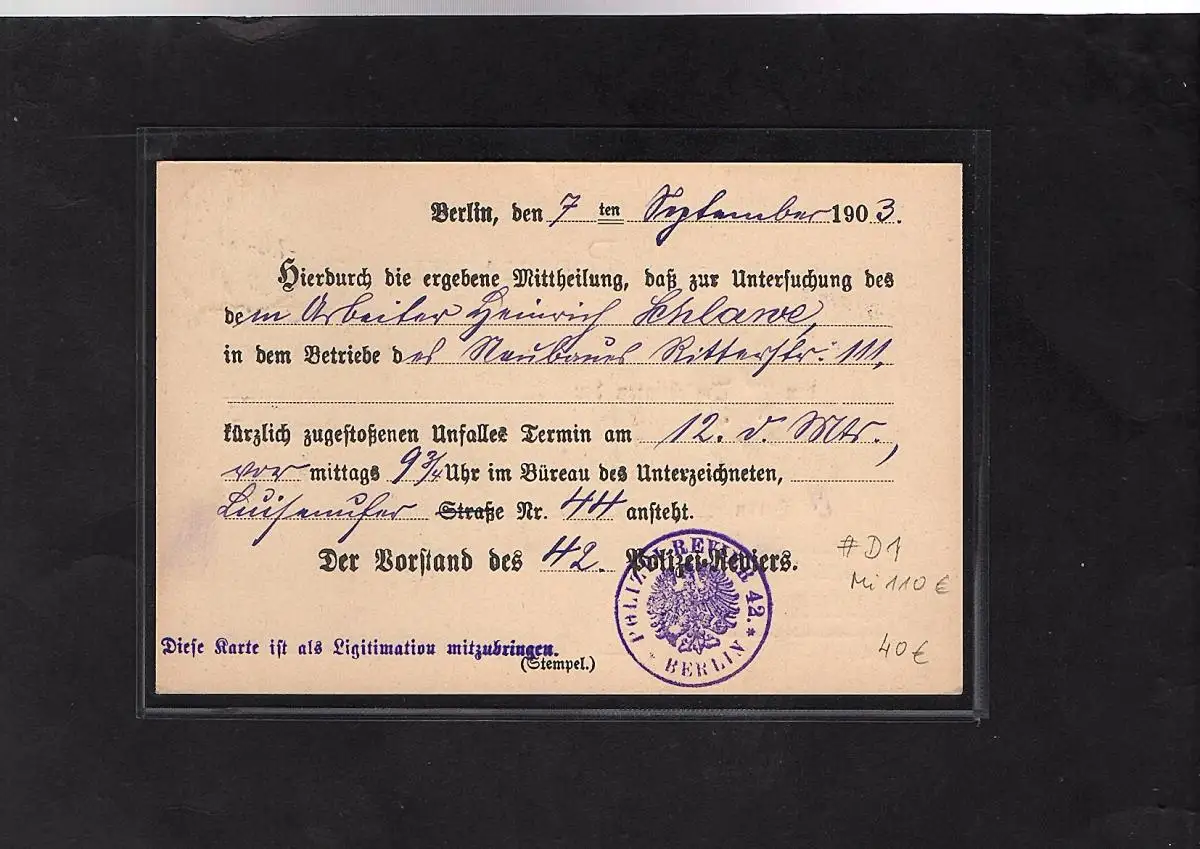 Berlin, den 7ten September 1903.
Hierdurch die ergebene Mittheilung, daß zur Untersuchung des
dem Arbeiter Heinrich Schlawe,
in dem Betriebe des Neubaues Ritterstr. 111,
kürzlich zugestoßenen Unfalles Termin am 12. d. Mts.,
vormittags 9 3/4 Uhr im Büreau des Unterzeichneten,
Luisenufer Straße Nr. 44 ansteht.
Der Vorstand des 42. Polizei-Reviers.
POLIZEI-REVIER 42. * BERLIN
#D1
Mi 110 €
Diese Karte ist als Legitimation mitzubringen.
(Stempel.)
40 €